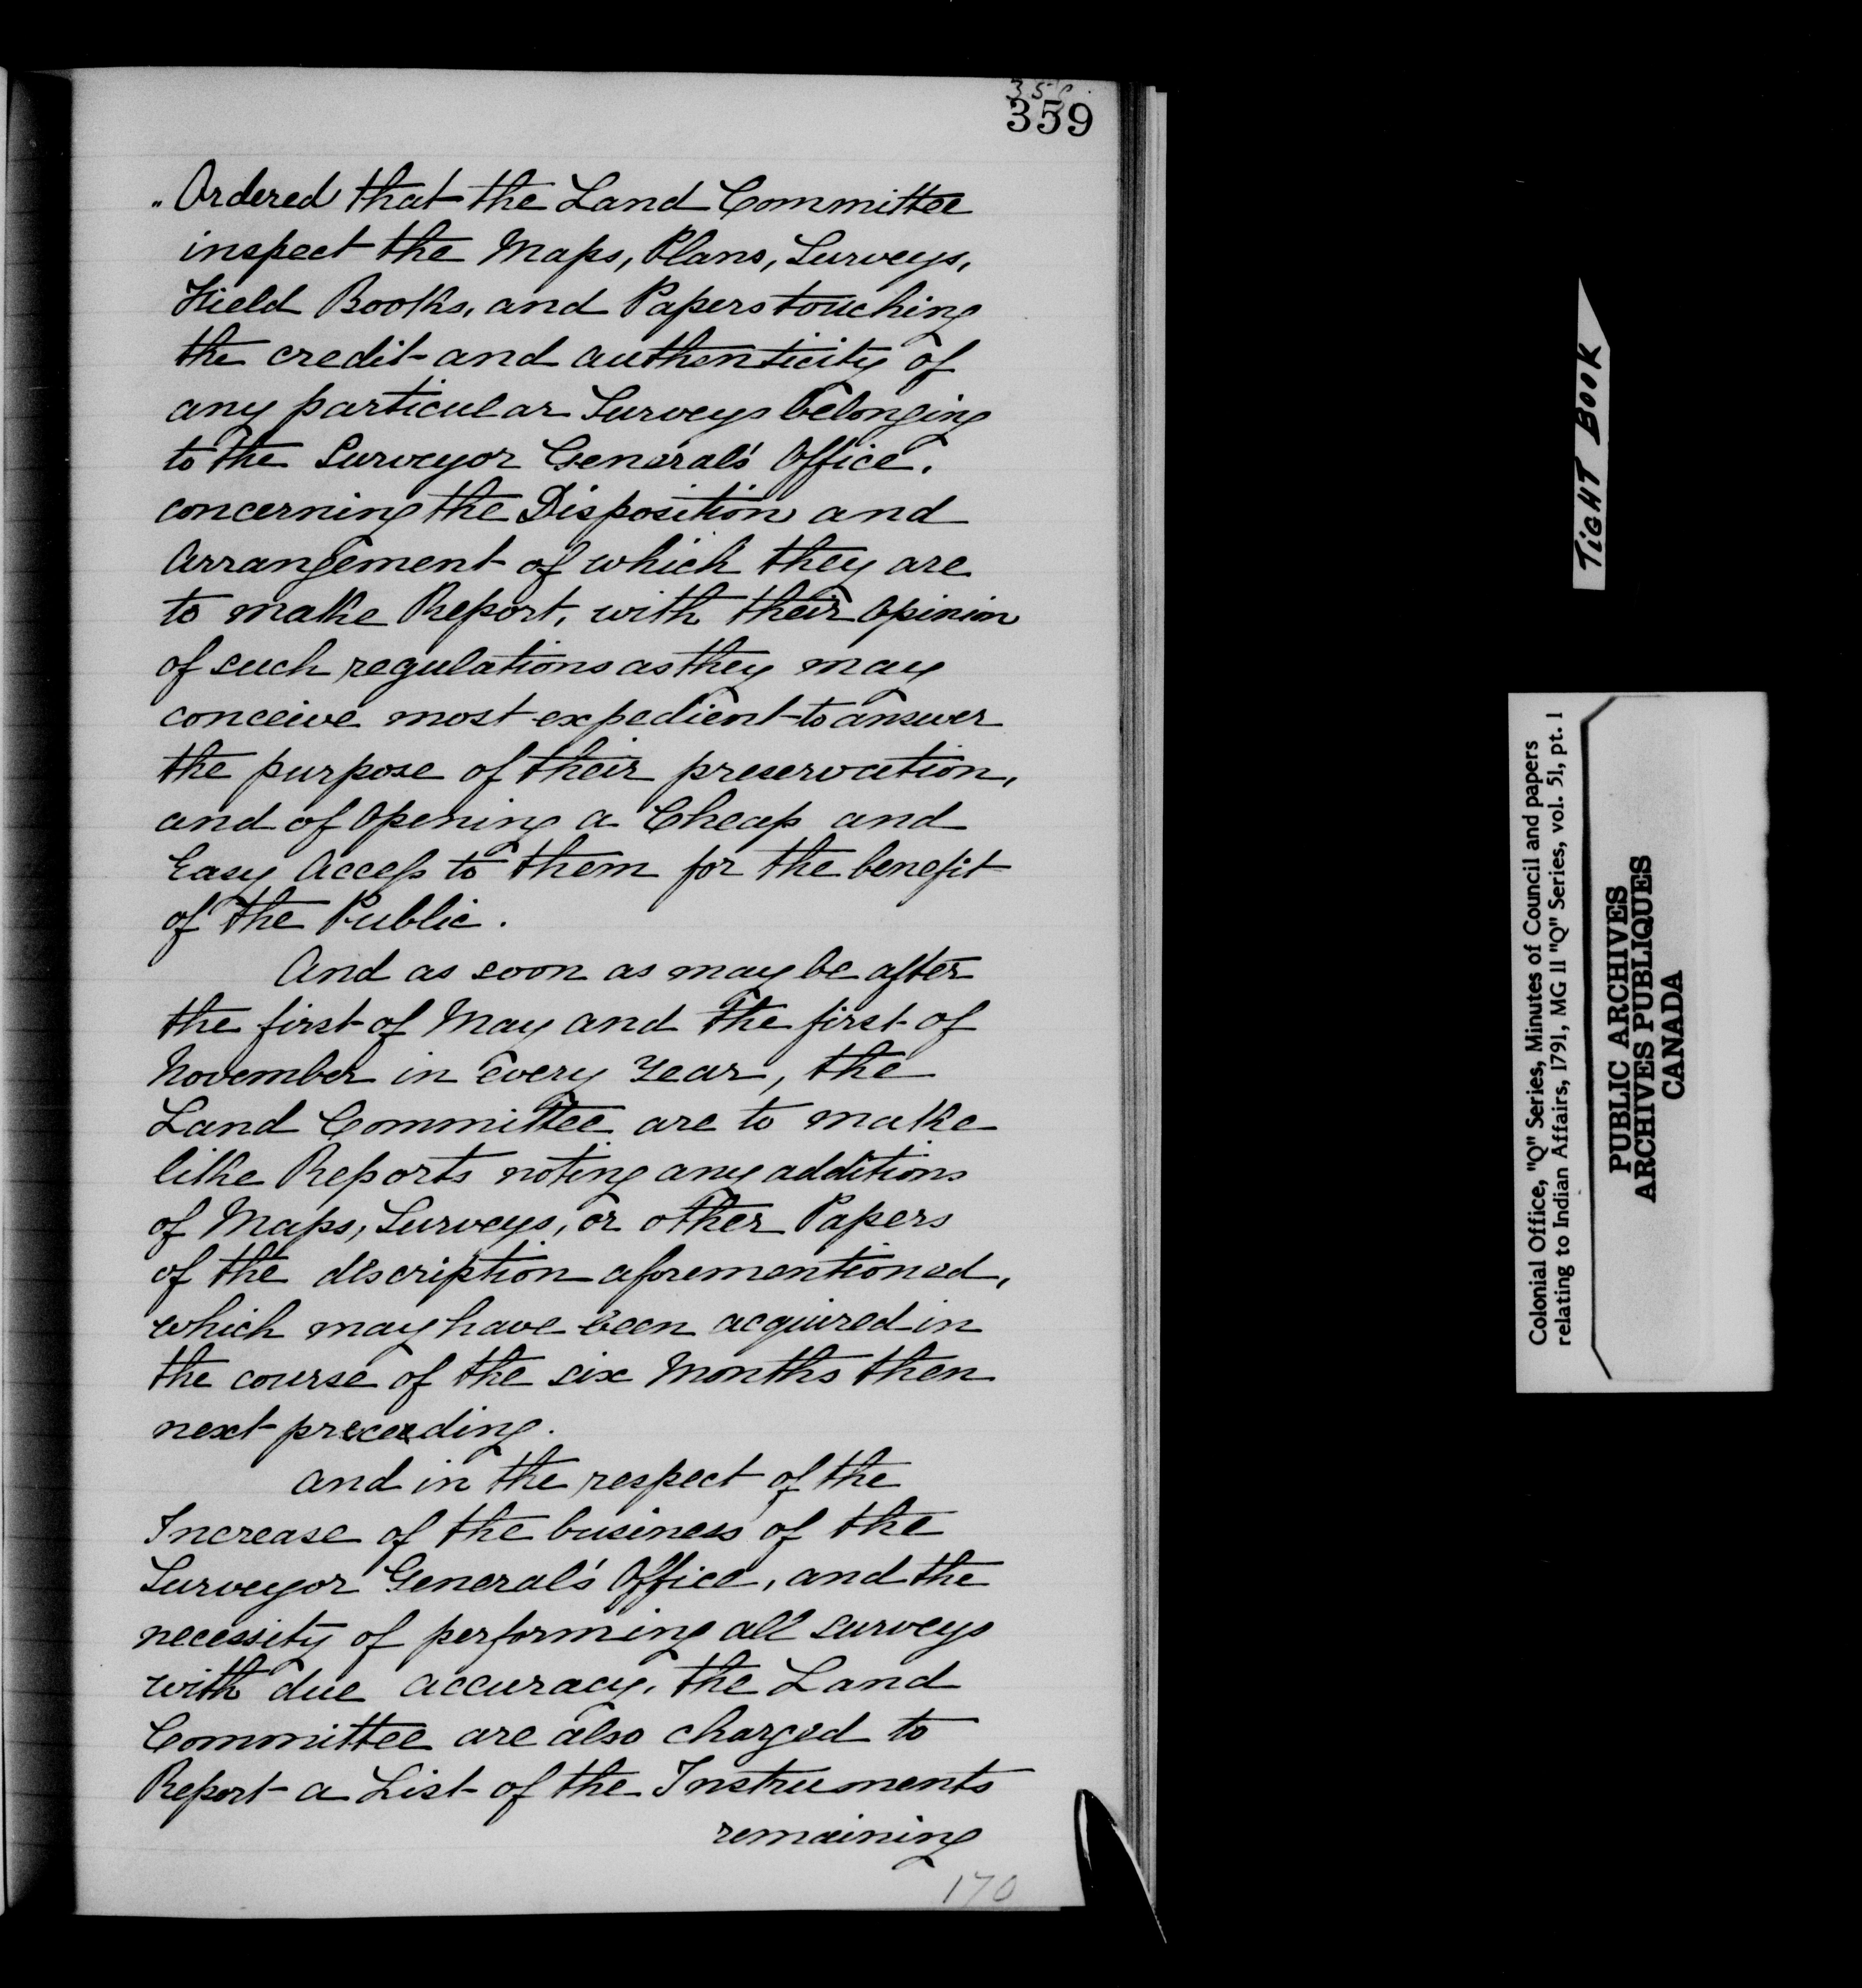 359
" Ordered that the Land Committee
inspect the Maps, Plans, Surveys,
Field Books, and Papers touching
the credit and authenticity of
any particular Surveys belonging
to the Surveyor General's Office.
concerning the Disposition and
Arrangement of which they are
to make Report, with their opinion
of such regulations as they may
conceive most expedient to answer
the purpose of their preservation,
and of opening a Cheap and
Easy Access to them for the benefit
of the Public.
And as soon as may be after
the first of May and the first of
November in every Year, the
Land Committee are to make
like Reports noting any additions
of Maps, Surveys, or other Papers
of the discription aforementioned,
which may have been acquired in
the course of the six Months then
next preceeding.
and in the respect of the
Increase of the business of the
Surveyor General's Office, and the
necessity of performing all surveys
with due accuracy, the Land
Committee are also charged to
Report a List of the Instruments
remaining
170
TIGHT BOOK
Colonial Office, "Q" Series, Minutes of Council and papers
relating to Indian Affairs, 1791, MG 11 "Q" Series, vol. 51, pt. 1
PUBLIC ARCHIVES
ARCHIVES PUBLIQUES
CANADA